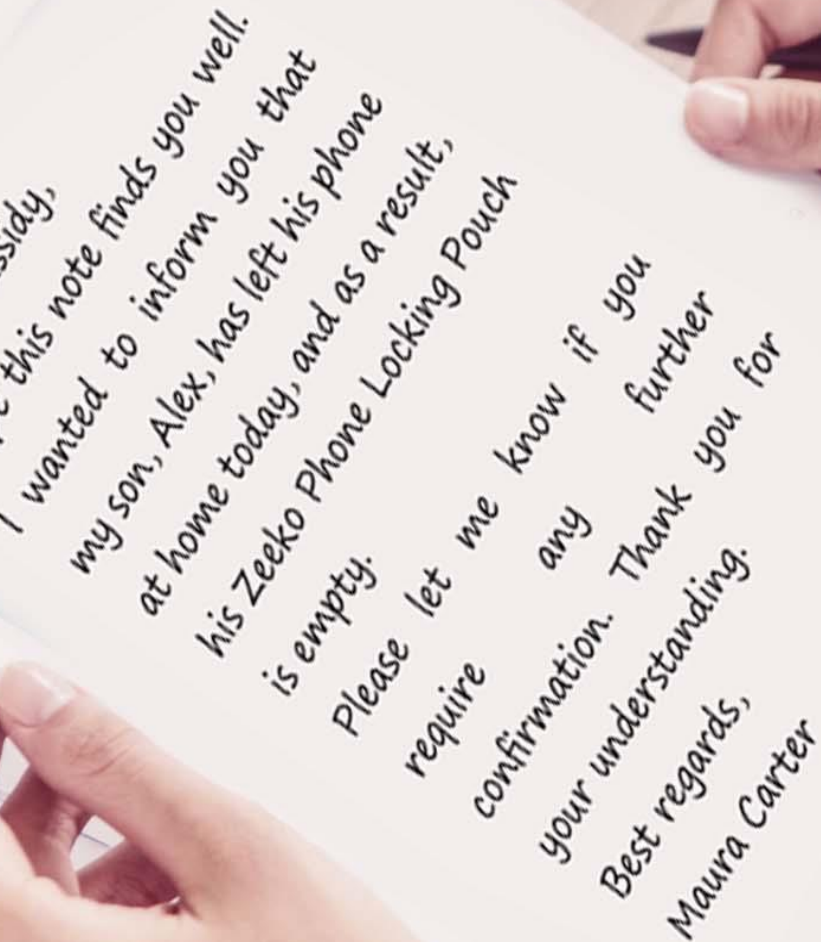 ssidy,
this note finds you well.
I wanted to inform you that
my son, Alex, has left his phone
at home today, and as a result,
his Zeeko Phone Locking Pouch
is empty.
Please let me know if you
require any further
confirmation. Thank you for
your understanding.
Best regards,
Maura Carter